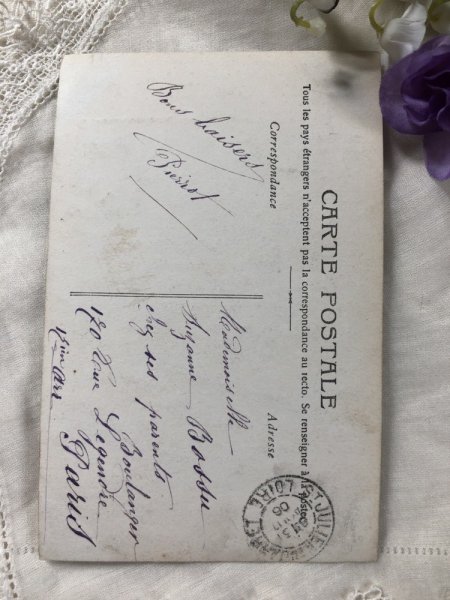 CARTE POSTALE
Tous les pays étrangers n'acceptent pas la correspondance au recto. Se renseigner à la poste
Correspondance
Adresse
Bons baisers
Pierrot
Mademoiselle
Suzanne Bossu
chez ses parents
Boulanger
120 Rue Legendre
17ème arr
Paris
LOIRET